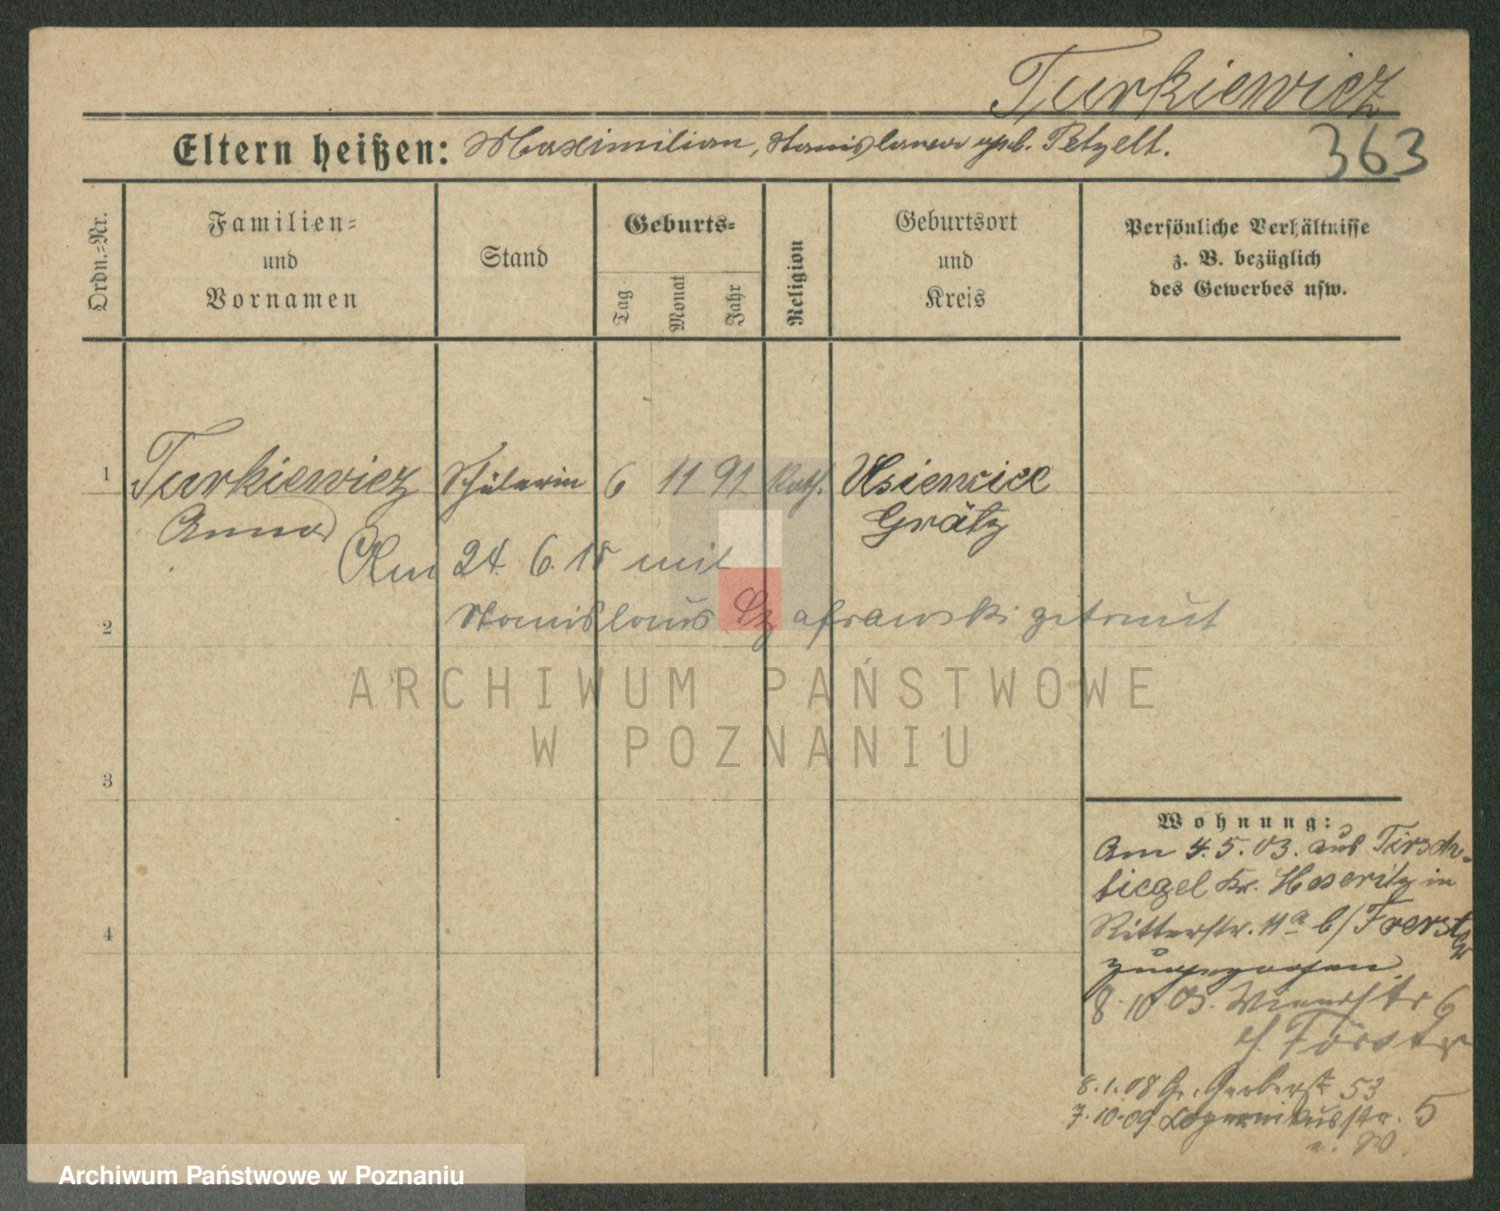 Turkiewicz
Eltern heißen: Maximilian, Stanislawa geb. Petzelt.
363
Ordn.=Nr.
Familien=
und
Vornamen
Stand
Geburts=
Tag
Monat
Jahr
Religion
Geburtsort
und
Kreis
Persönliche Verhältnisse
z. B. bezüglich
des Gewerbes usw.
1 Turkiewicz Schülerin 6 11 91 Kath.
Anna Grätz
Am 24. 6. 18 mit
2 Stanislaus Szafranski getraut
ARCHIWUM PAŃSTWOWE
W POZNANIU
3
4
Wohnung:
Am 4.5.03. aus Tirsch-
tiegel Kr. Meseritz in
Ritterstr. 11a b/
zugezogen
8.10.05. 6
8.1.08 Gr. Gerberstr. 53
7.10.09 5
Archiwum Państwowe w Poznaniu